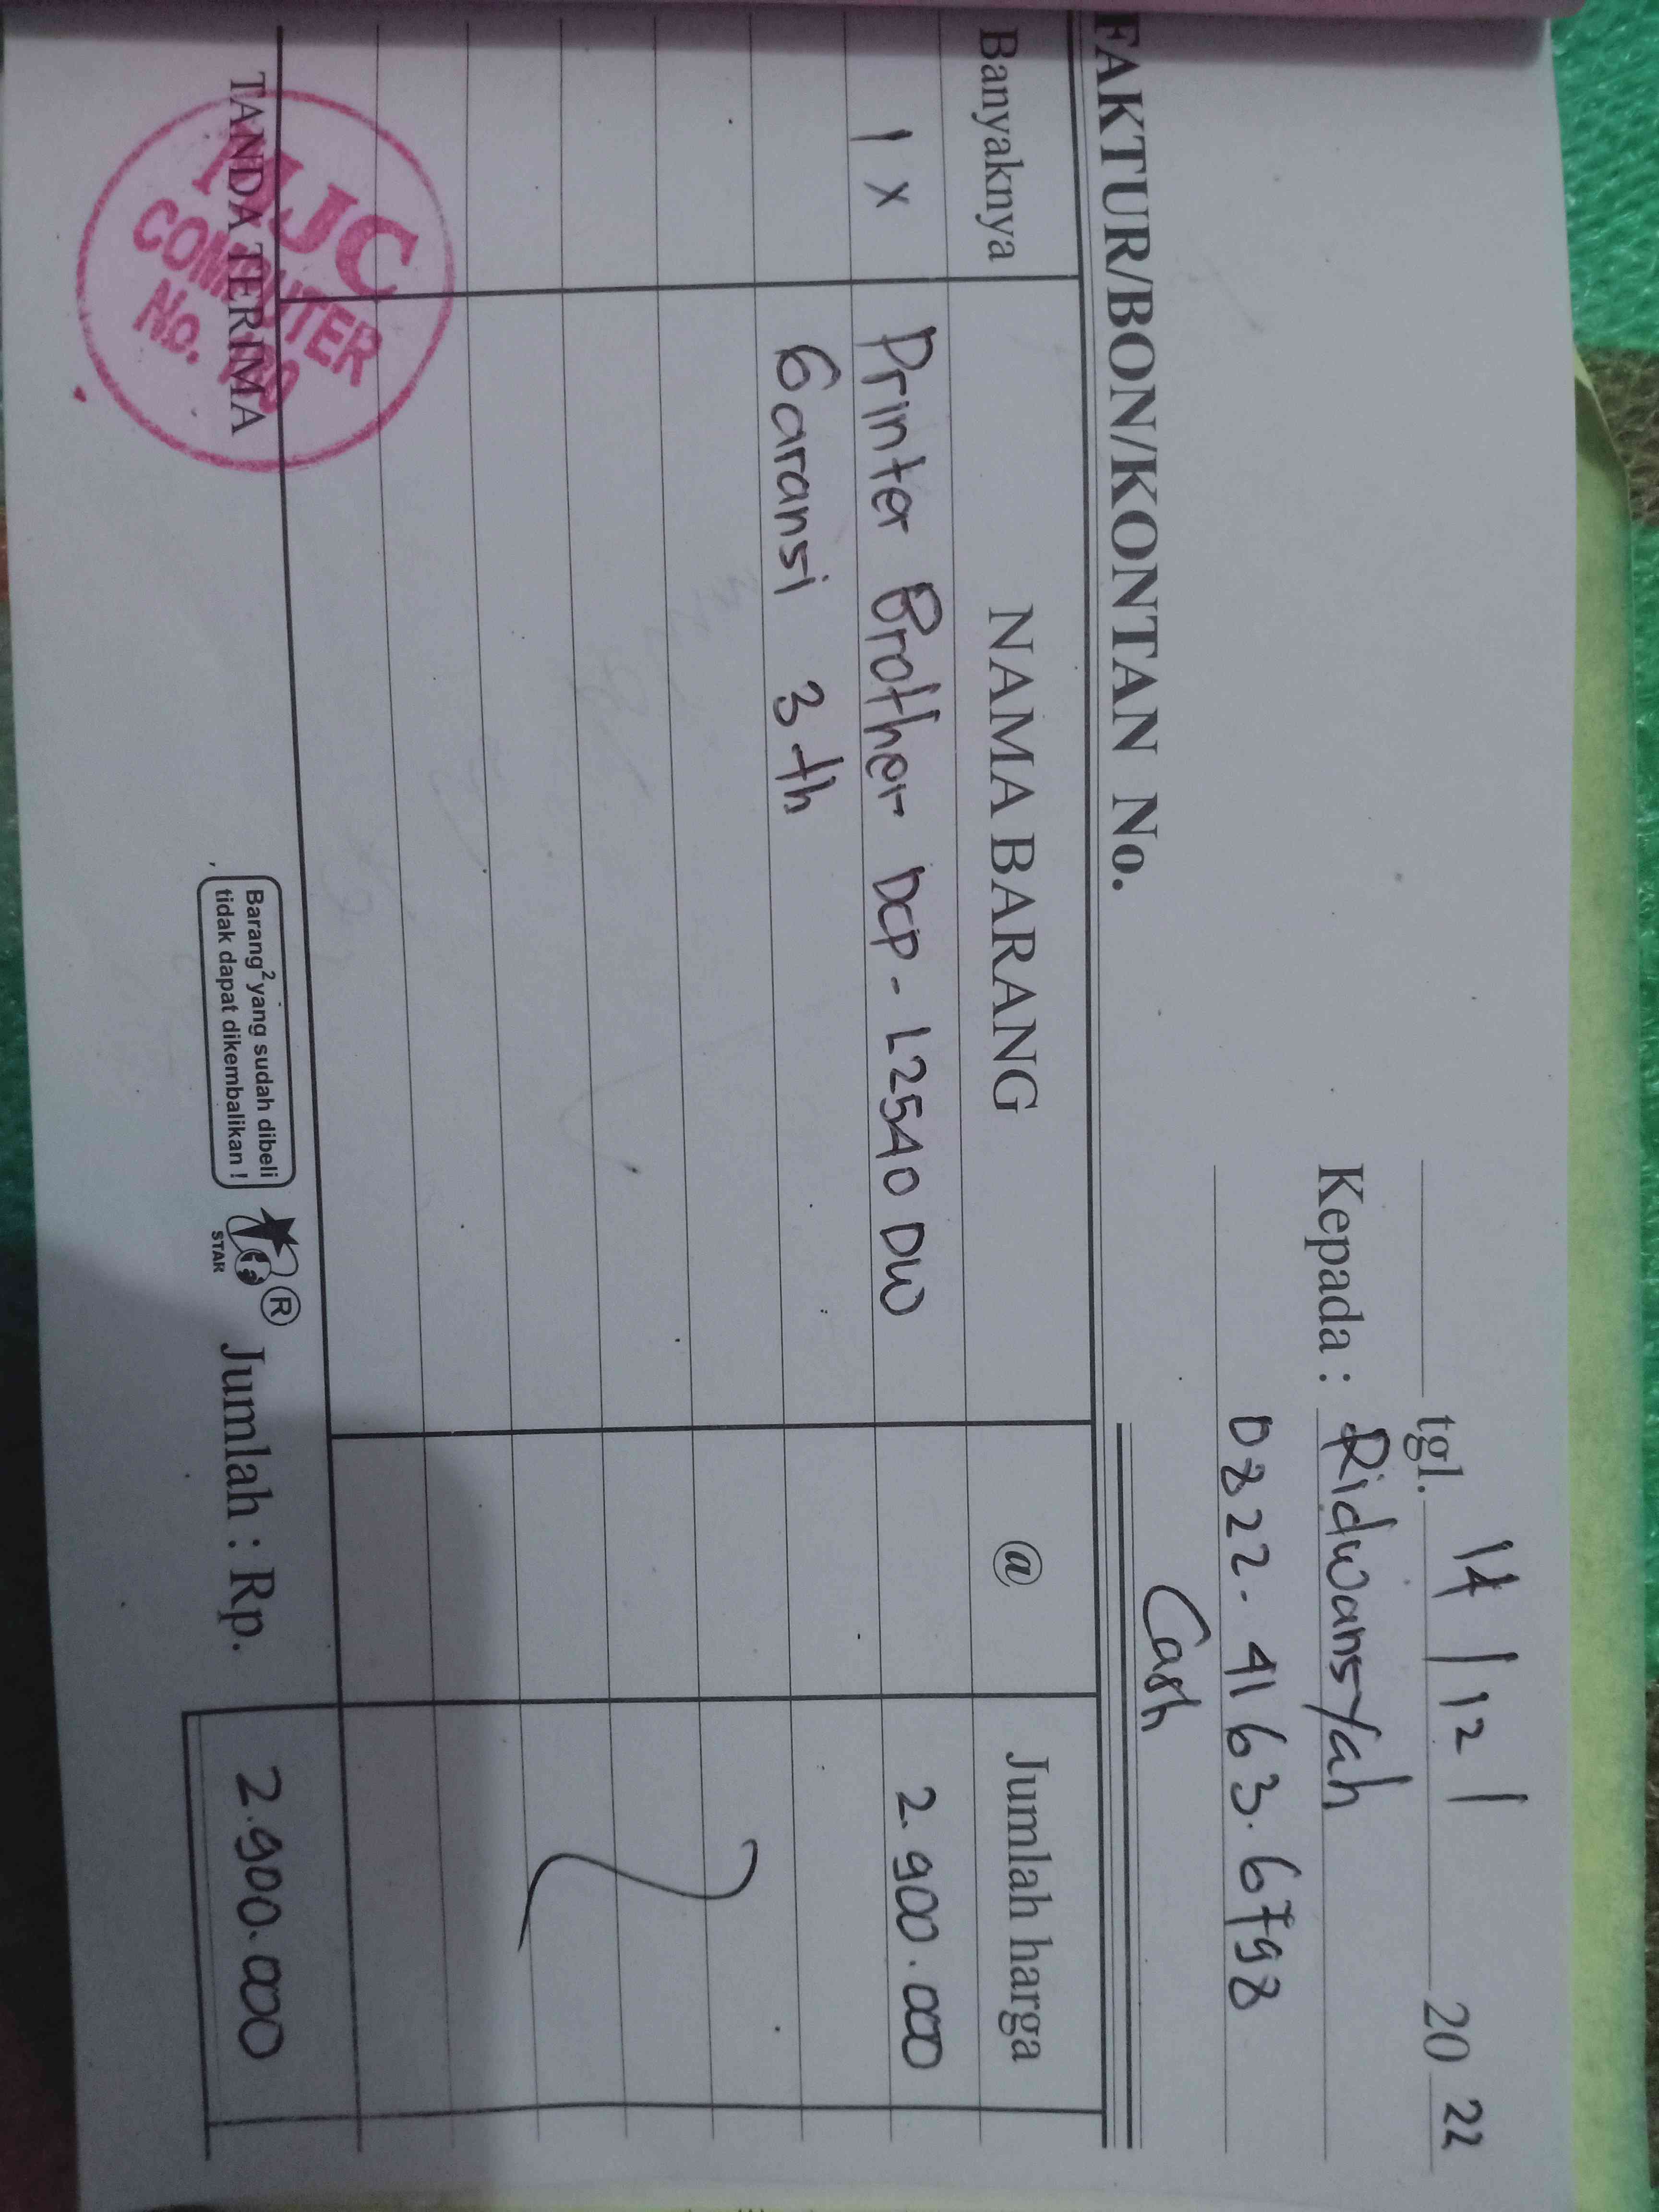 tgl. 14 / 12 / 20 22
Kepada : Ridwansyah
0822-4163.6798
Cash
FAKTUR/BON/KONTAN No.
Banyaknya NAMA BARANG @ Jumlah harga
1 x Printer Brother DCP-L2540 DW 2.900.000
Garansi 3 th
TANDA TERIMA
JC
COMPUTER
No.
Barang² yang sudah dibeli
tidak dapat dikembalikan !
STAR
®
Jumlah : Rp. 2.900.000